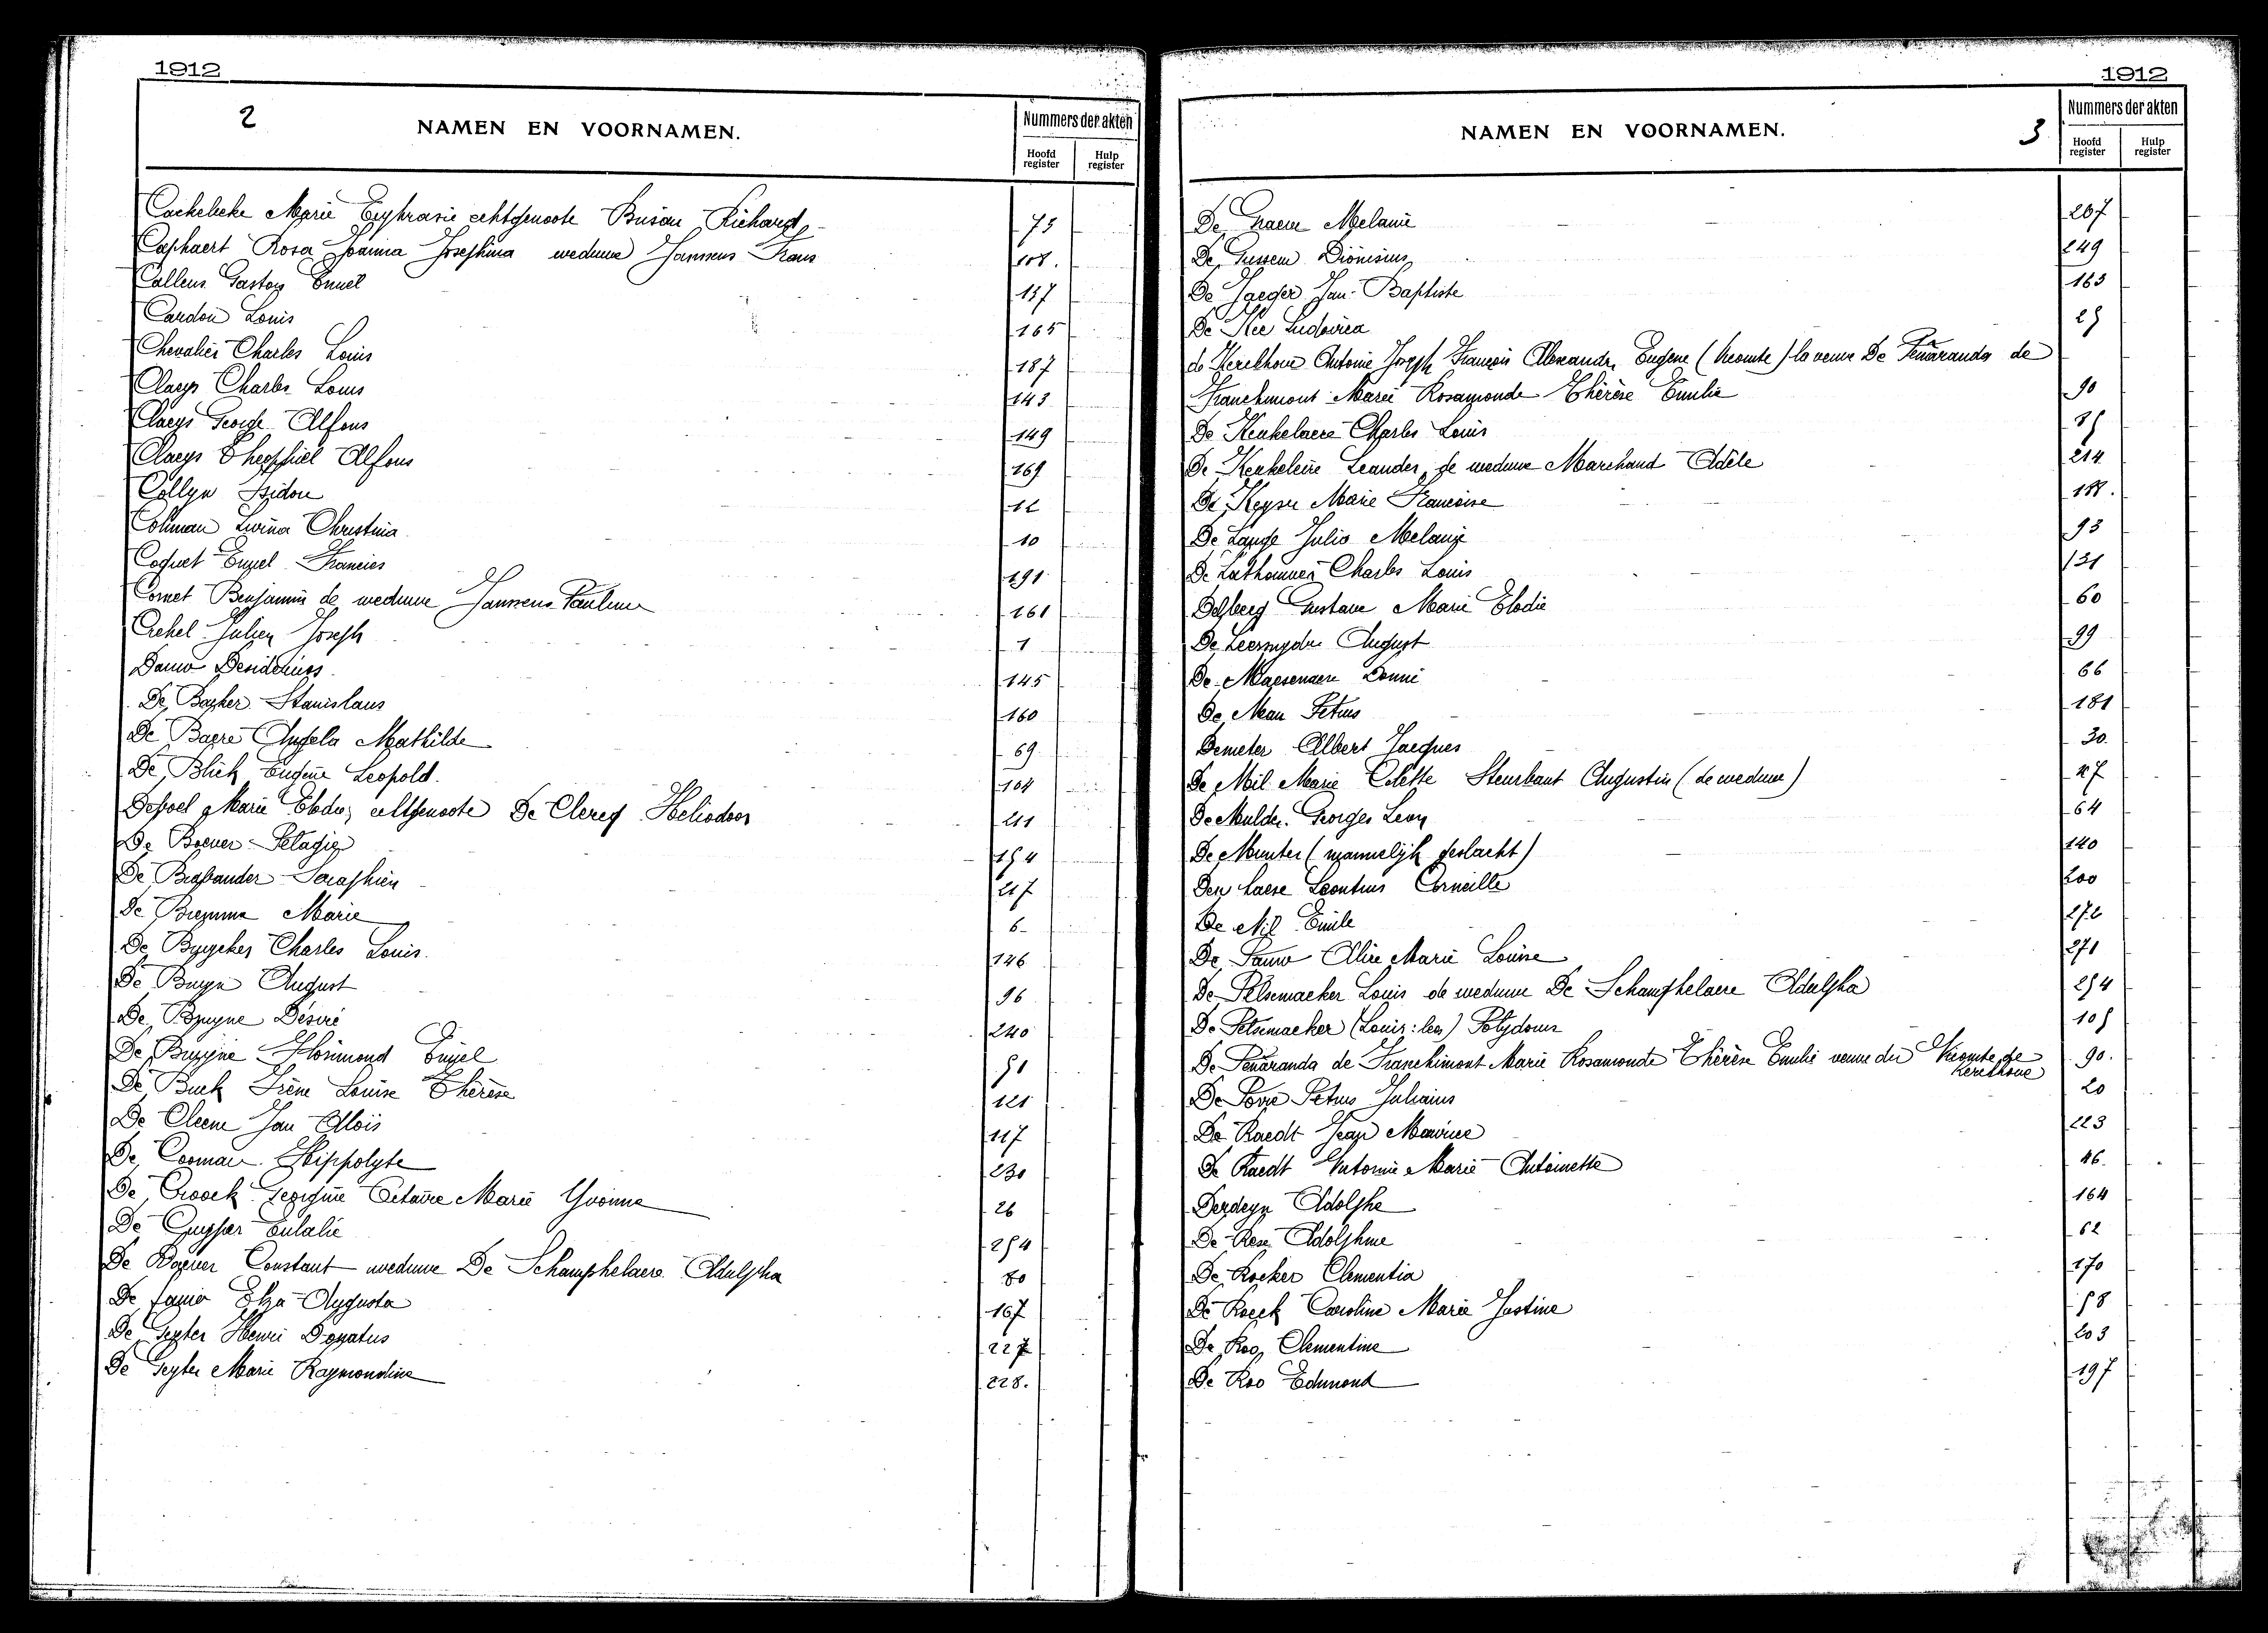 1912
2
NAMEN EN VOORNAMEN.
Nummers der akten
Hoofd register
Hulp register
Cachelieke Marie Euphrasie echtgenoote Busan Richard 75
Caphaert Rosa Joanna Josephina weduwe Janssens Frans 108.
Callens Gaston Emiel 137
Cardon Louis 165
Chevalier Charles Louis 187
Claeys Charles Louis 143
Claeys George Alfons 149
Claeys Theophiel Alfons 169
Collyn Isidore 12
Colman Lwina Christina 10
Coquet Engel Francies 191
Cornet Benjamin de weduwe Janssens Pauline 161
Crehel Julien Joseph 1
Damo Desiderius 145
De Backer Stanislaus 160
De Baere Angela Mathilde 69
De Blick Eugene Leopold. 104
Deboel Marie Elodie, echtgenoote De Clercq Heliodoor 211
De Boever Pelagie 154
De Brabander Seraphien 217
De Marie 6
De Byycker Charles Louis. 146
De Buyn August 96
De Bruyne Desiré 240
De Bruyne Florimond Emiel 51
De Buck Irène Louise Thérèse 121
De Cleene Jan Aloïs 117
De Cooman Hippolyte 230
De Croock Georgine Octavie Marie Yvonne 26
De Cuyper Eulalie 254
De Constant weduwe De Schamphelaere Adulpha 80
De Elza Augusta 167
De Geyter Henri Donatus 227
De Geyter Marie Raymondine 228.
1912
NAMEN EN VOORNAMEN.
3
Nummers der akten
Hoofd register
Hulp register
De Graeve Melanie 267
De Gussem Dionisius 249
De Jaeger Jan-Baptiste 163
De Kee Ludovica 25
de Kerckhove Antoine Joseph François Alexandre Eugene (Vicomte) la veuve De Peñaranda de
Franchimont Marie Rosamonde Thérèse Emilie 90
De Keukelaere Charles Louis 35
De Keukeleire Leander, de weduwe Marchand Adèle 214
De Keyser Marie Françoise 188.
De Lange Julio Melanie 93
De Lathouwer Charles Louis 131
Delberg Gustave Marie Elodie 60
De Leersnyder August 99
De Maesenaere 66
De Man Petrus 181
Demeter Albert Jacques 30
De Mil Marie Colette Steurbaut Augustin (de weduwe) 27
De Mulder Georges Leon 64
De Munter (mannelijk geslacht) 140
Den haese Leontius Corneille 200
De Nil Emile 272
De Pauw Alice Marie Louise 271
De Pelsemaeker Louis de weduwe De Schamphelaere Adulpha 254
De Pelsemaeker (Louis: ) Polydoux 105
De Peñaranda de Franchimont Marie Rosamonde Thérèse Emilie veuve du Vicomte de Kerckhove 90.
De Poorte Petrus Julianus 20
De Raedt Jean Maurice 223
De Raedt Antonie Marie Antoinette 46.
Derdeyn Adolphe 164
De Rese Adolphine 62
De Rocker Clementia 170
De Roeck Caroline Marie Justine 58
De Roo, Clementine 203
De Roo Edmond 197